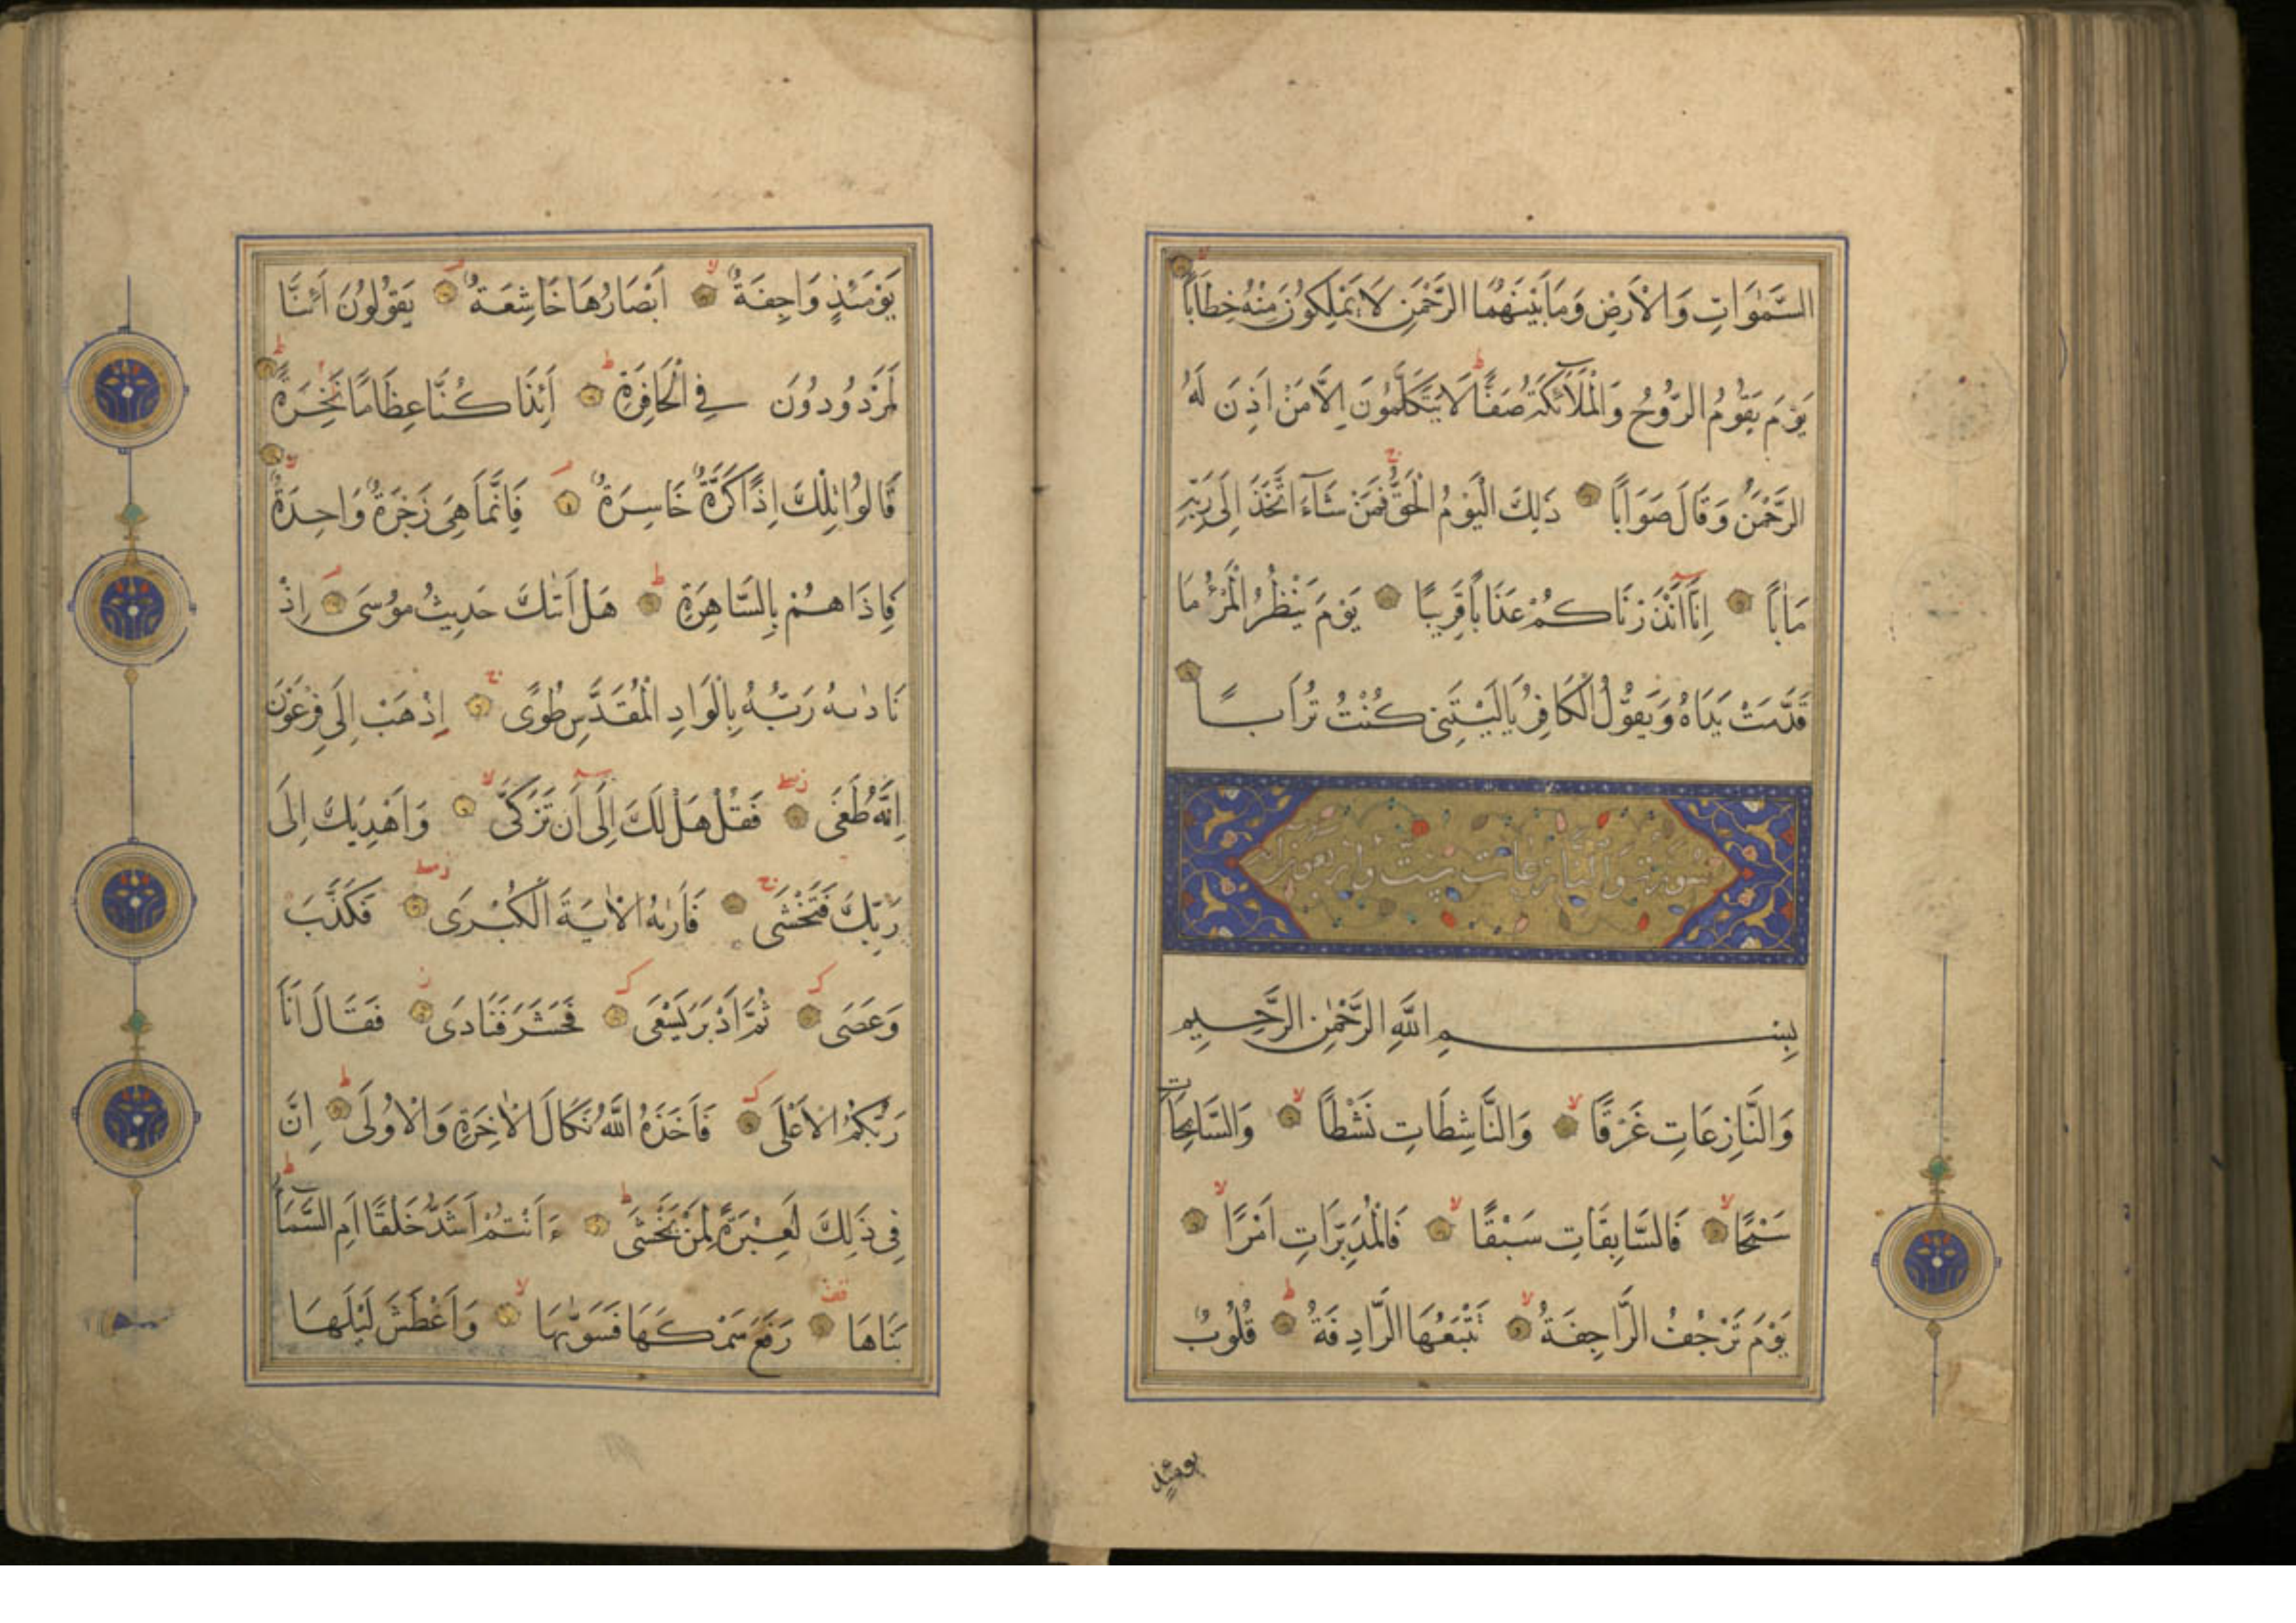 السَّمٰوَاتِ وَالْاَرْضِ وَمَا بَيْنَهُمَا الرَّحْمٰنِ لَا يَمْلِكُونَ مِنْهُ خِطَابًا
يَوْمَ يَقُومُ الرُّوحُ وَالْمَلَآئِكَةُ صَفًّا لَا يَتَكَلَّمُونَ اِلَّا مَنْ اَذِنَ لَهُ
الرَّحْمٰنُ وَقَالَ صَوَابًا ذَلِكَ الْيَوْمُ الْحَقُّ فَمَنْ شَآءَ اتَّخَذَ اِلَى رَبِّهِ
مَاٰبًا اِنَّآ اَنْذَرْنَاكُمْ عَذَابًا قَرِيبًا يَوْمَ يَنْظُرُ الْمَرْءُ مَا
قَدَّمَتْ يَدَاهُ وَيَقُولُ الْكَافِرُ يَالَيْتَنِى كُنْتُ تُرَابًا
سورة والنازعات ست واربعون اية
بِسْمِ اللَّهِ الرَّحْمٰنِ الرَّحِيمِ
وَالنَّازِعَاتِ غَرْقًا وَالنَّاشِطَاتِ نَشْطًا وَالسَّابِحَاتِ
سَبْحًا فَالسَّابِقَاتِ سَبْقًا فَالْمُدَبِّرَاتِ اَمْرًا
يَوْمَ تَرْجُفُ الرَّاجِفَةُ تَتْبَعُهَا الرَّادِفَةُ قُلُوبٌ
يومئذٍ
يَوْمَئِذٍ وَاجِفَةٌ اَبْصَارُهَا خَاشِعَةٌ يَقُولُونَ اَئِنَّا
لَمَرْدُودُونَ فِي الْحَافِرَةِ اَئِذَا كُنَّا عِظَامًا نَخِرَةً
قَالُوا تِلْكَ اِذًا كَرَّةٌ خَاسِرَةٌ فَاِنَّمَا هِيَ زَجْرَةٌ وَاحِدَةٌ
فَاِذَا هُمْ بِالسَّاهِرَةِ هَلْ اَتٰىكَ حَدِيثُ مُوسَى اِذْ
نَادٰىهُ رَبُّهُ بِالْوَادِ الْمُقَدَّسِ طُوًى اِذْهَبْ اِلَى فِرْعَوْنَ
اِنَّهُ طَغَى فَقُلْ هَلْ لَكَ اِلَى اَنْ تَزَكَّى وَاَهْدِيَكَ اِلَى
رَبِّكَ فَتَخْشَى فَاَرٰىهُ الْاٰيَةَ الْكُبْرَى فَكَذَّبَ
وَعَصَى ثُمَّ اَدْبَرَ يَسْعَى فَحَشَرَ فَنَادَى فَقَالَ اَنَا
رَبُّكُمُ الْاَعْلَى فَاَخَذَهُ اللَّهُ نَكَالَ الْاٰخِرَةِ وَالْاُولَى اِنَّ
فِى ذَلِكَ لَعِبْرَةً لِمَنْ يَخْشَى ءَاَنْتُمْ اَشَدُّ خَلْقًا اَمِ السَّمَآءُ
بَنَاهَا رَفَعَ سَمْكَهَا فَسَوّٰيهَا وَاَغْطَشَ لَيْلَهَا